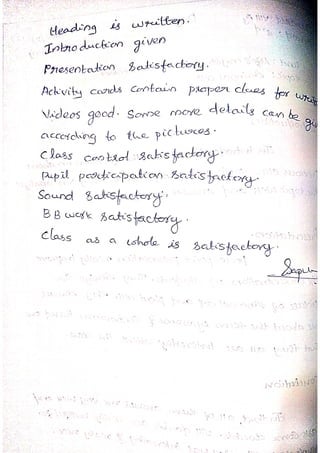 Heading is written.
Introduction given
Presentation satisfactory.
Activity cards contain proper clues for
Videos good. Some more details can be
according to the pictures.
Class control satisfactory.
Pupil participation satisfactory.
Sound satisfactory.
BB work satisfactory.
Class as a whole is satisfactory.